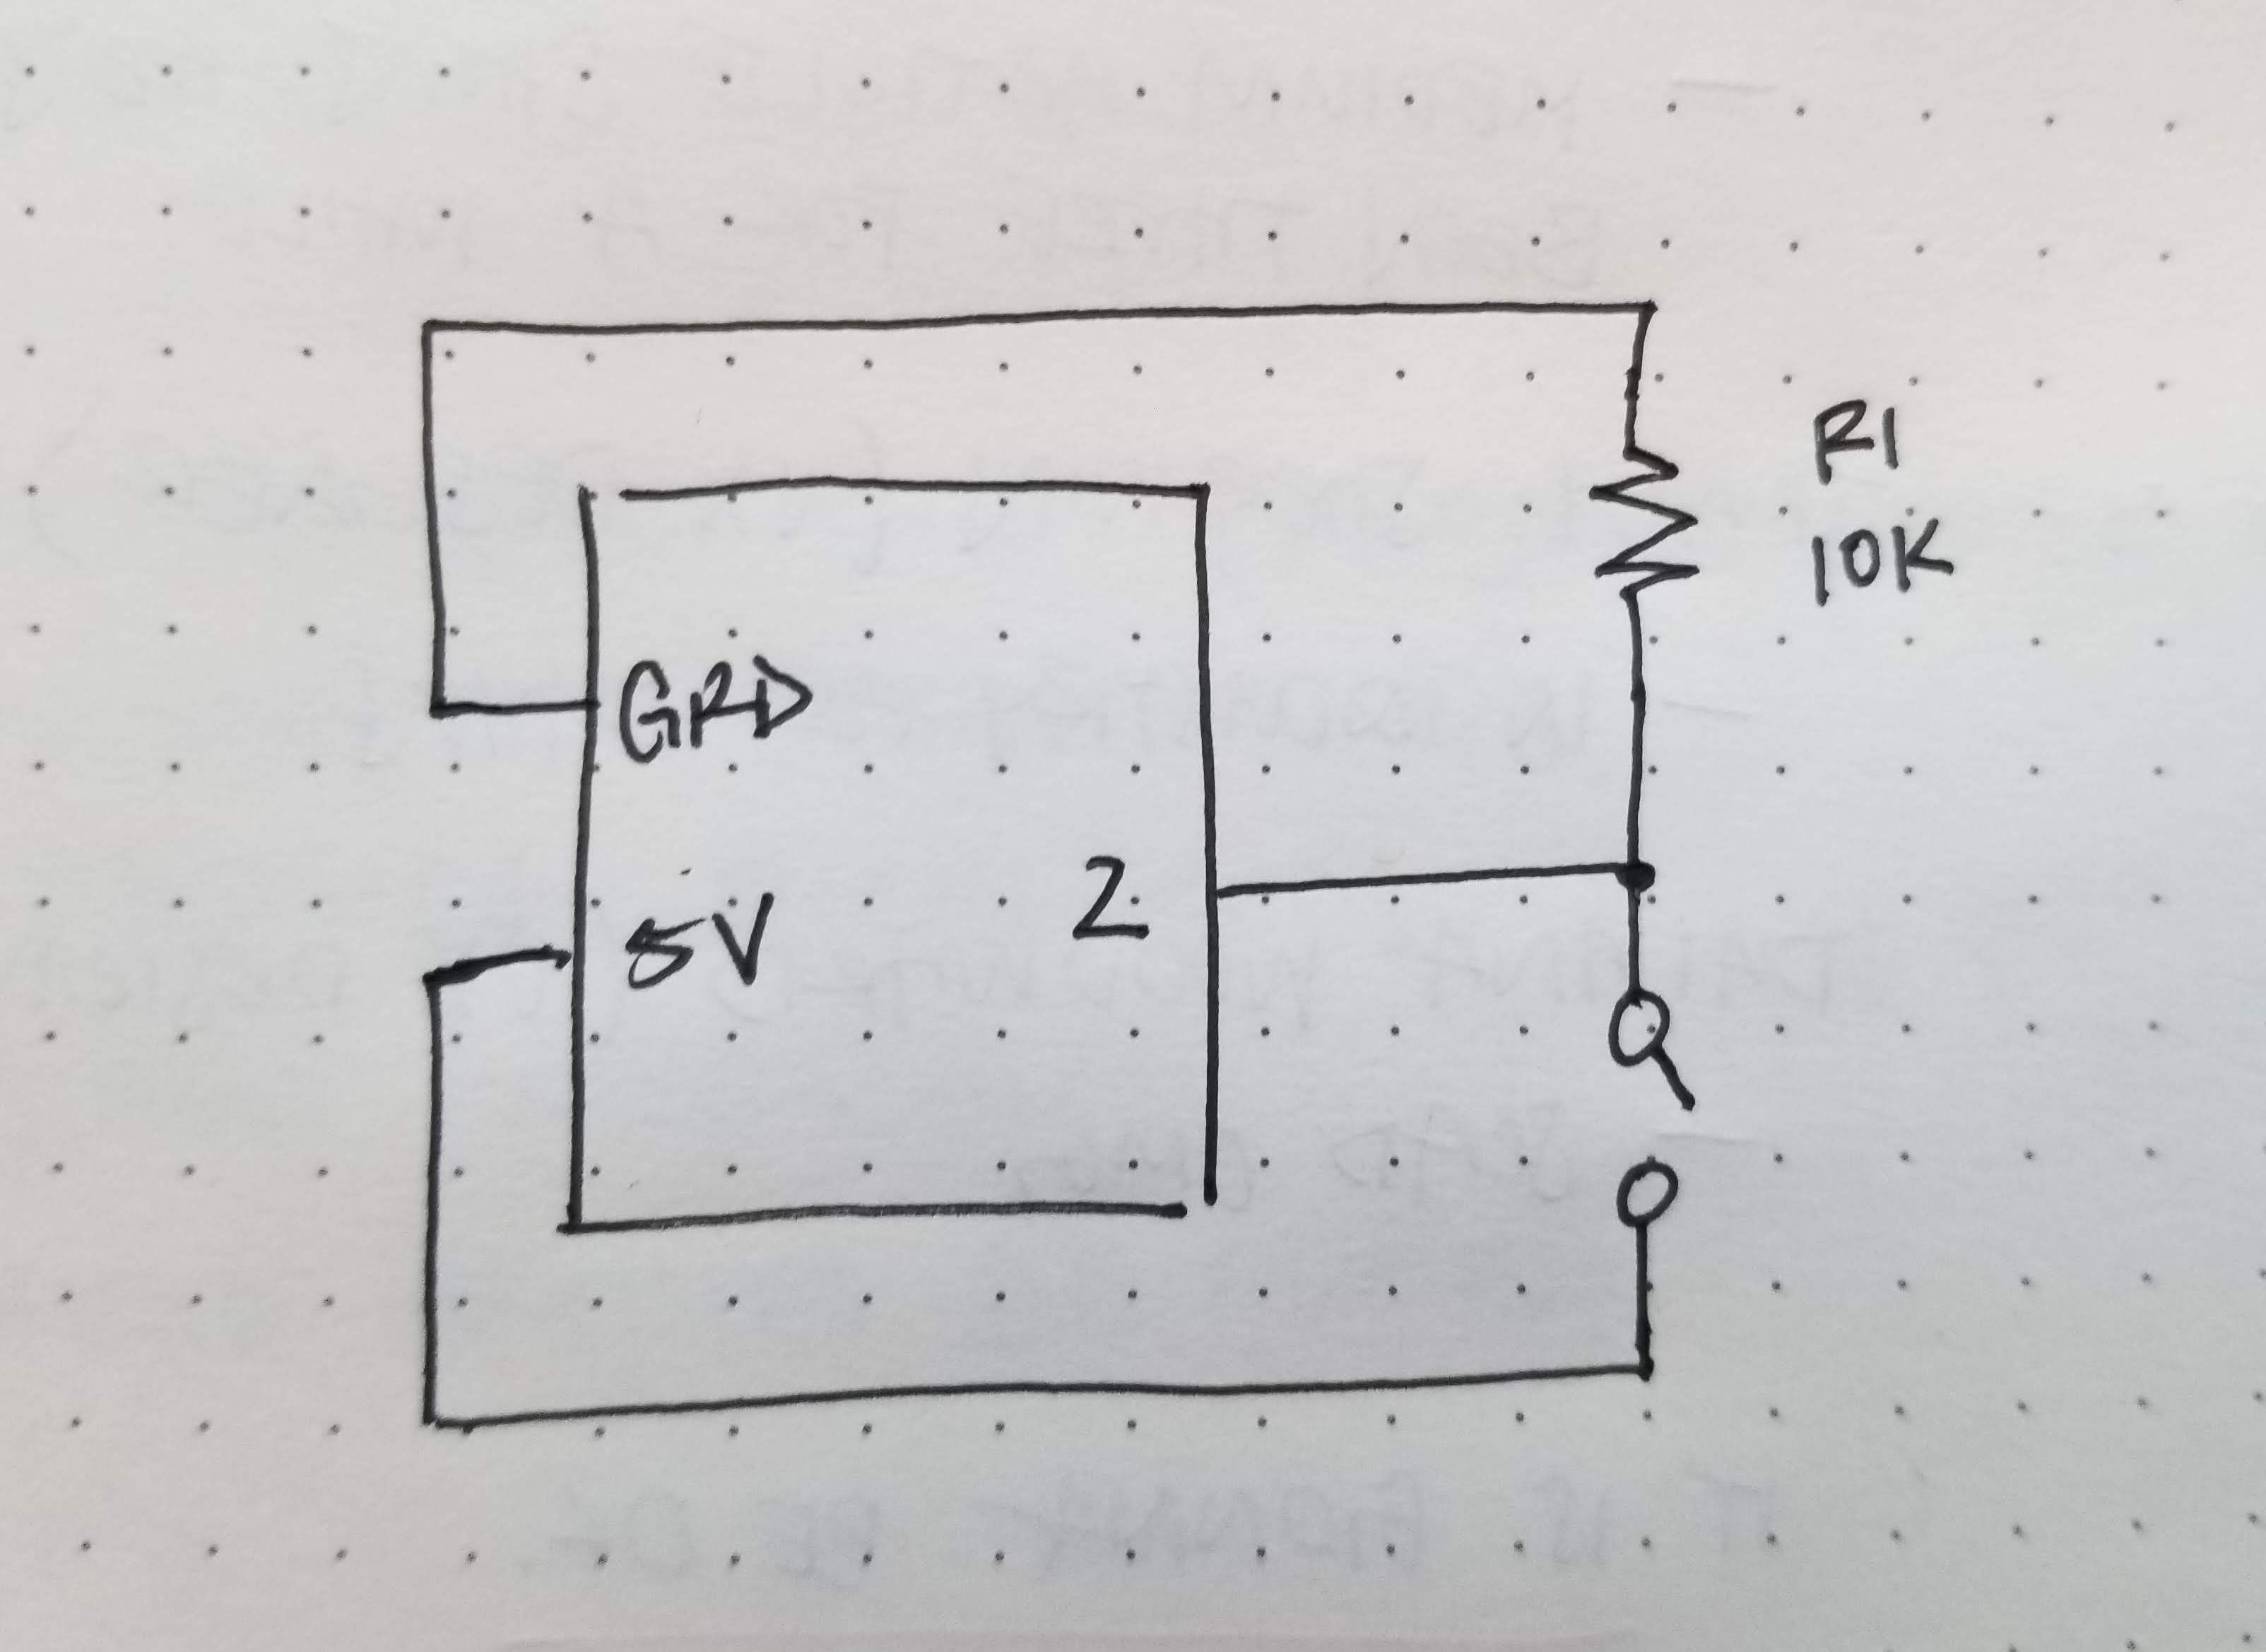 R1
10K
GRD
5V
2